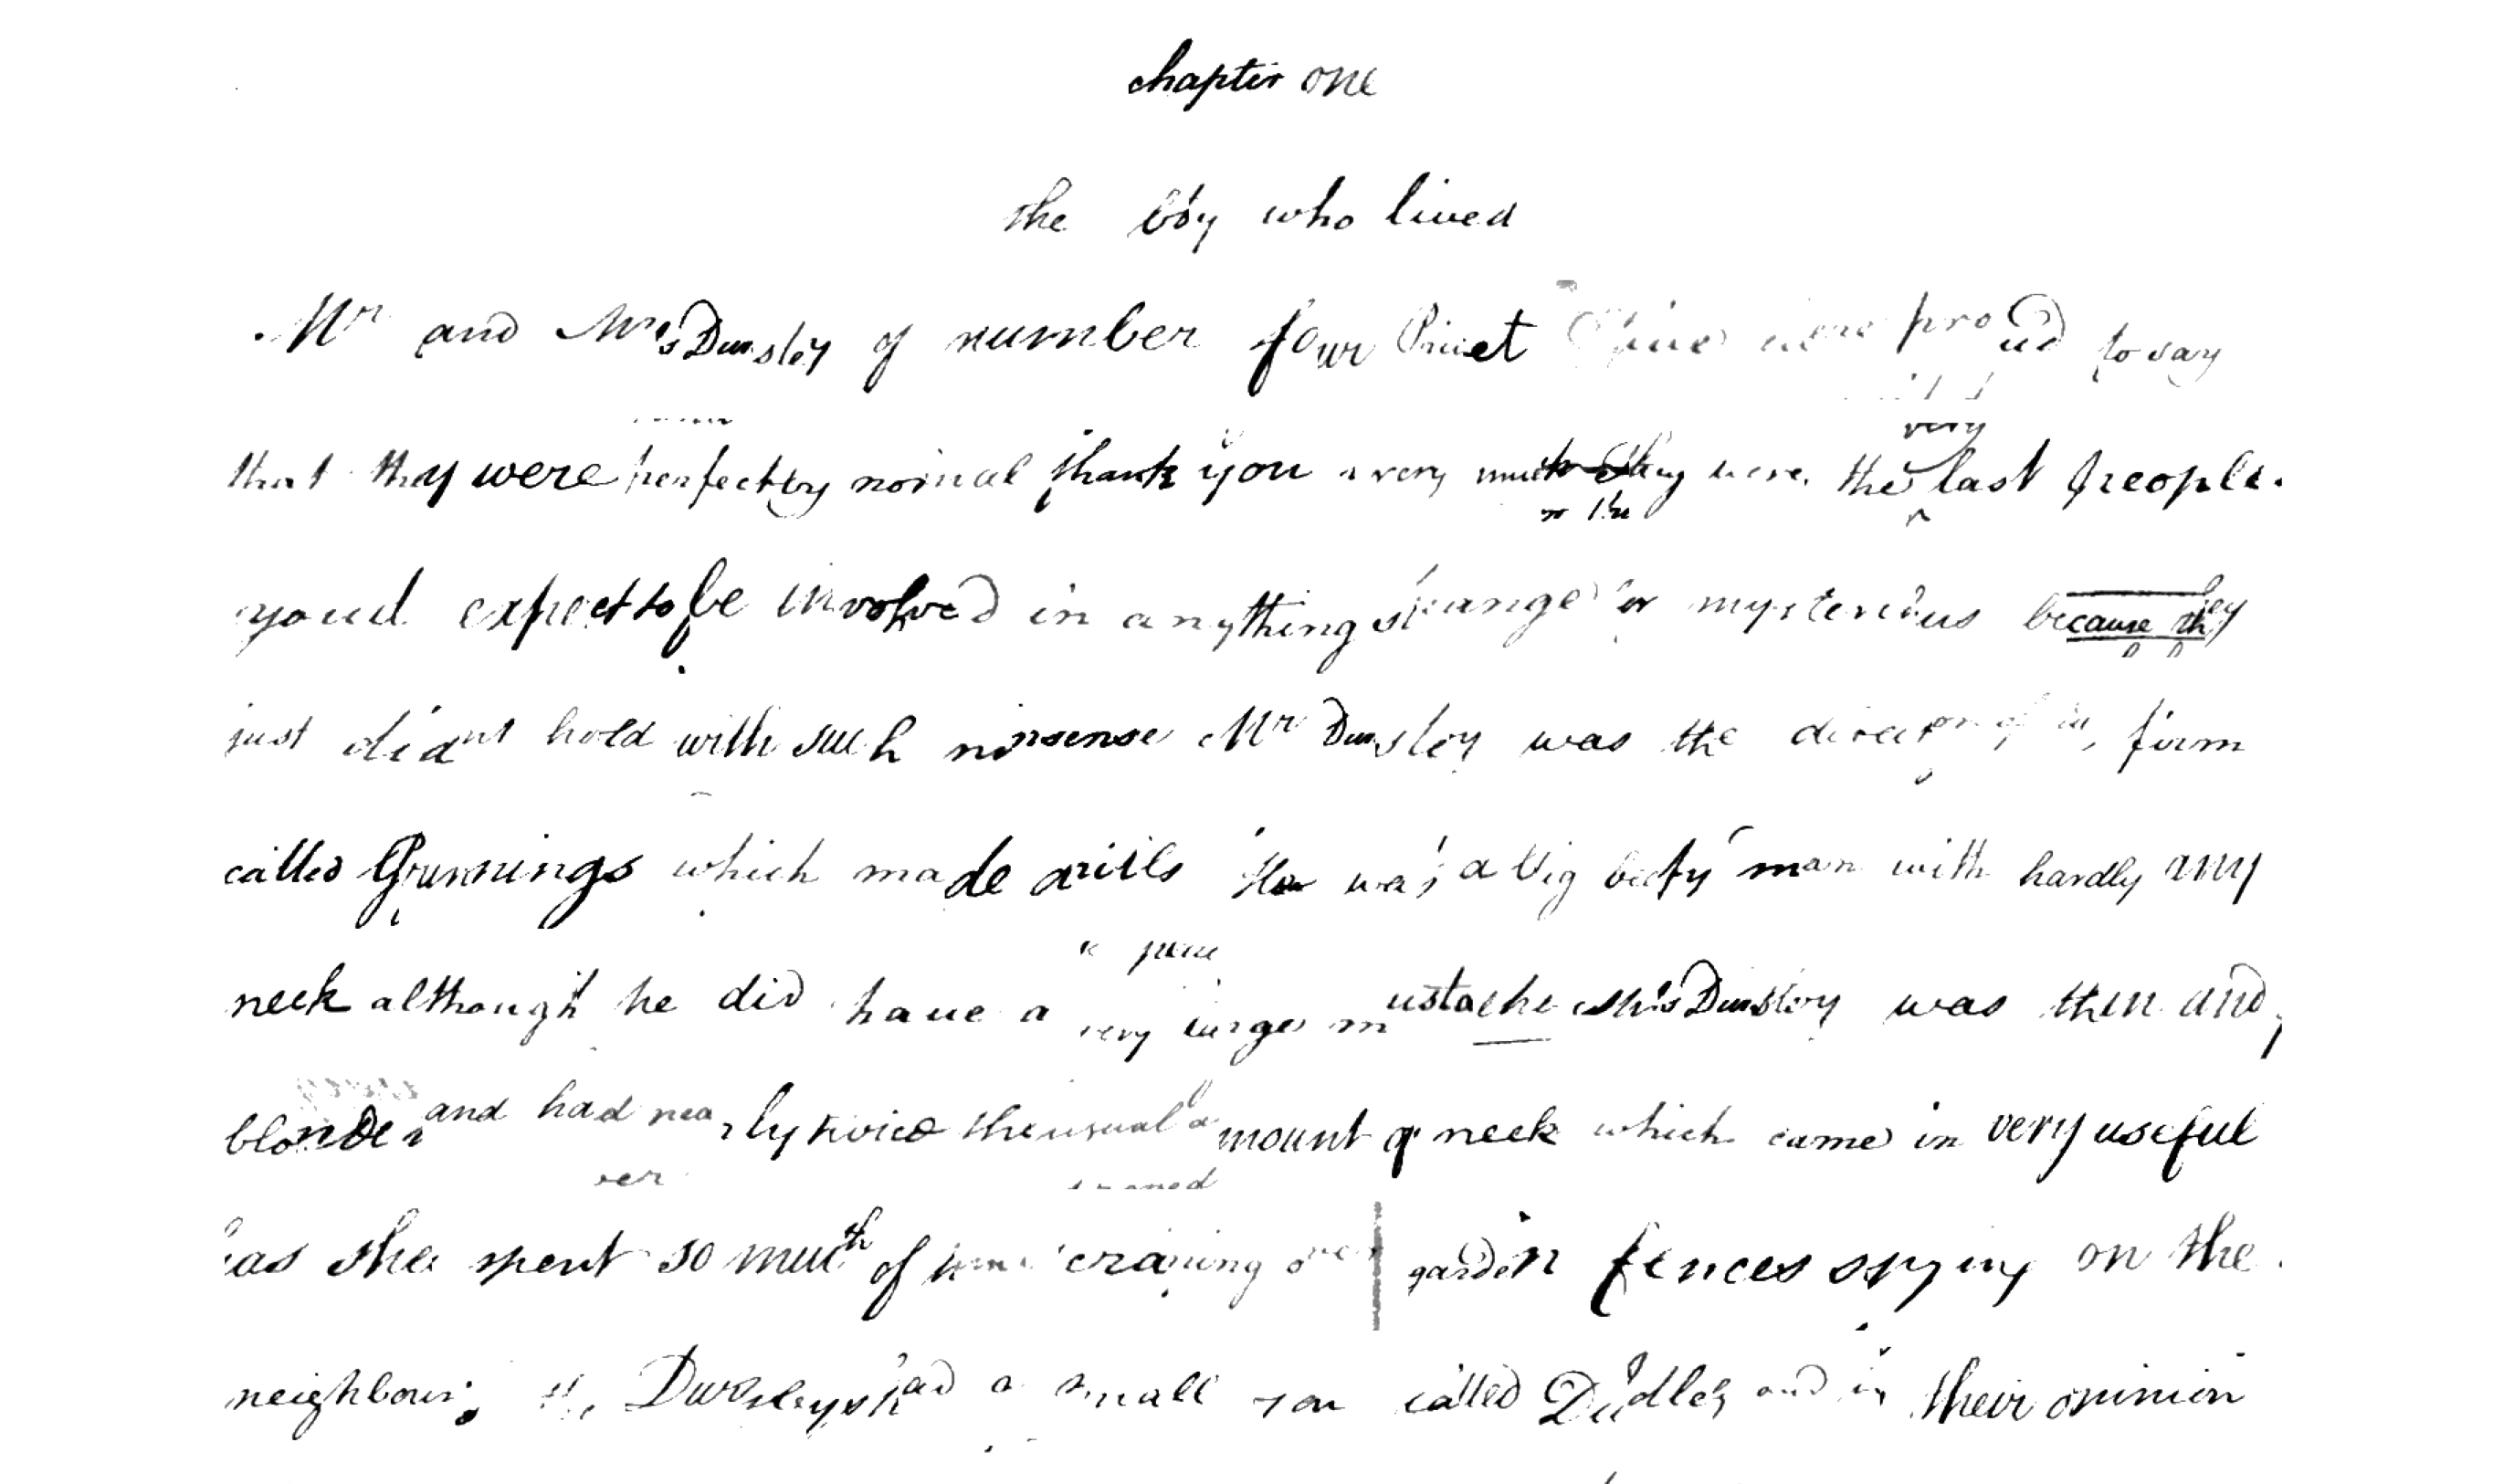 chapter one
the boy who lived
Mr and Mrs Dursley of number four Privet Drive were proud to say
that they were perfectly normal thank you very much they were the last people
youd expect to be involved in anything strange or mysterious because they
just didnt hold with such nonsense Mr Dursley was the director of a firm
called Grunnings which made drills He was a big beefy man with hardly any
neck although he did have a very large mustache Mrs Dursley was thin and
blonde and had nearly twice the usual amount of neck which came in very useful
as she spent so much of time craning over garden fences spying on the
neighbours the Dursleys had a small son called Dudley and in their opinion